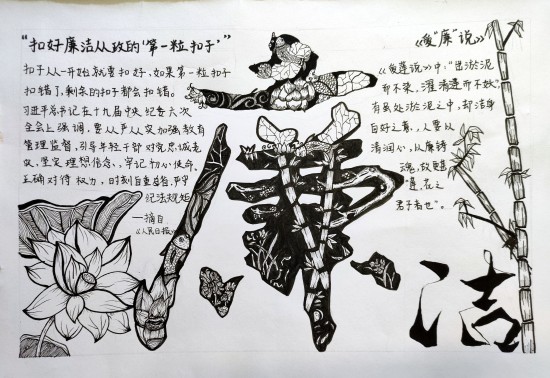 “扣好廉洁从政的‘第一粒扣子’”
扣子从一开始就要扣好，如果第一粒扣子
扣错了，剩余的扣子都会扣错。
习近平总书记在十九届中央纪委六次
全会上强调，要从严从实加强教育
管理监督，引导年轻干部对党忠诚老
实，坚定理想信念，牢记初心使命，
正确对待权力，时刻自重自省，严守
纪法规矩
——摘自
《人民日报》
廉
洁
《爱“廉”说》
《爱莲说》中：“出淤泥
而不染，濯清涟而不妖”
有虽处淤泥之中，却洁身
自好之意，人要以
清润心，以廉铸
魂，故题
“莲，花之
君子者也”。